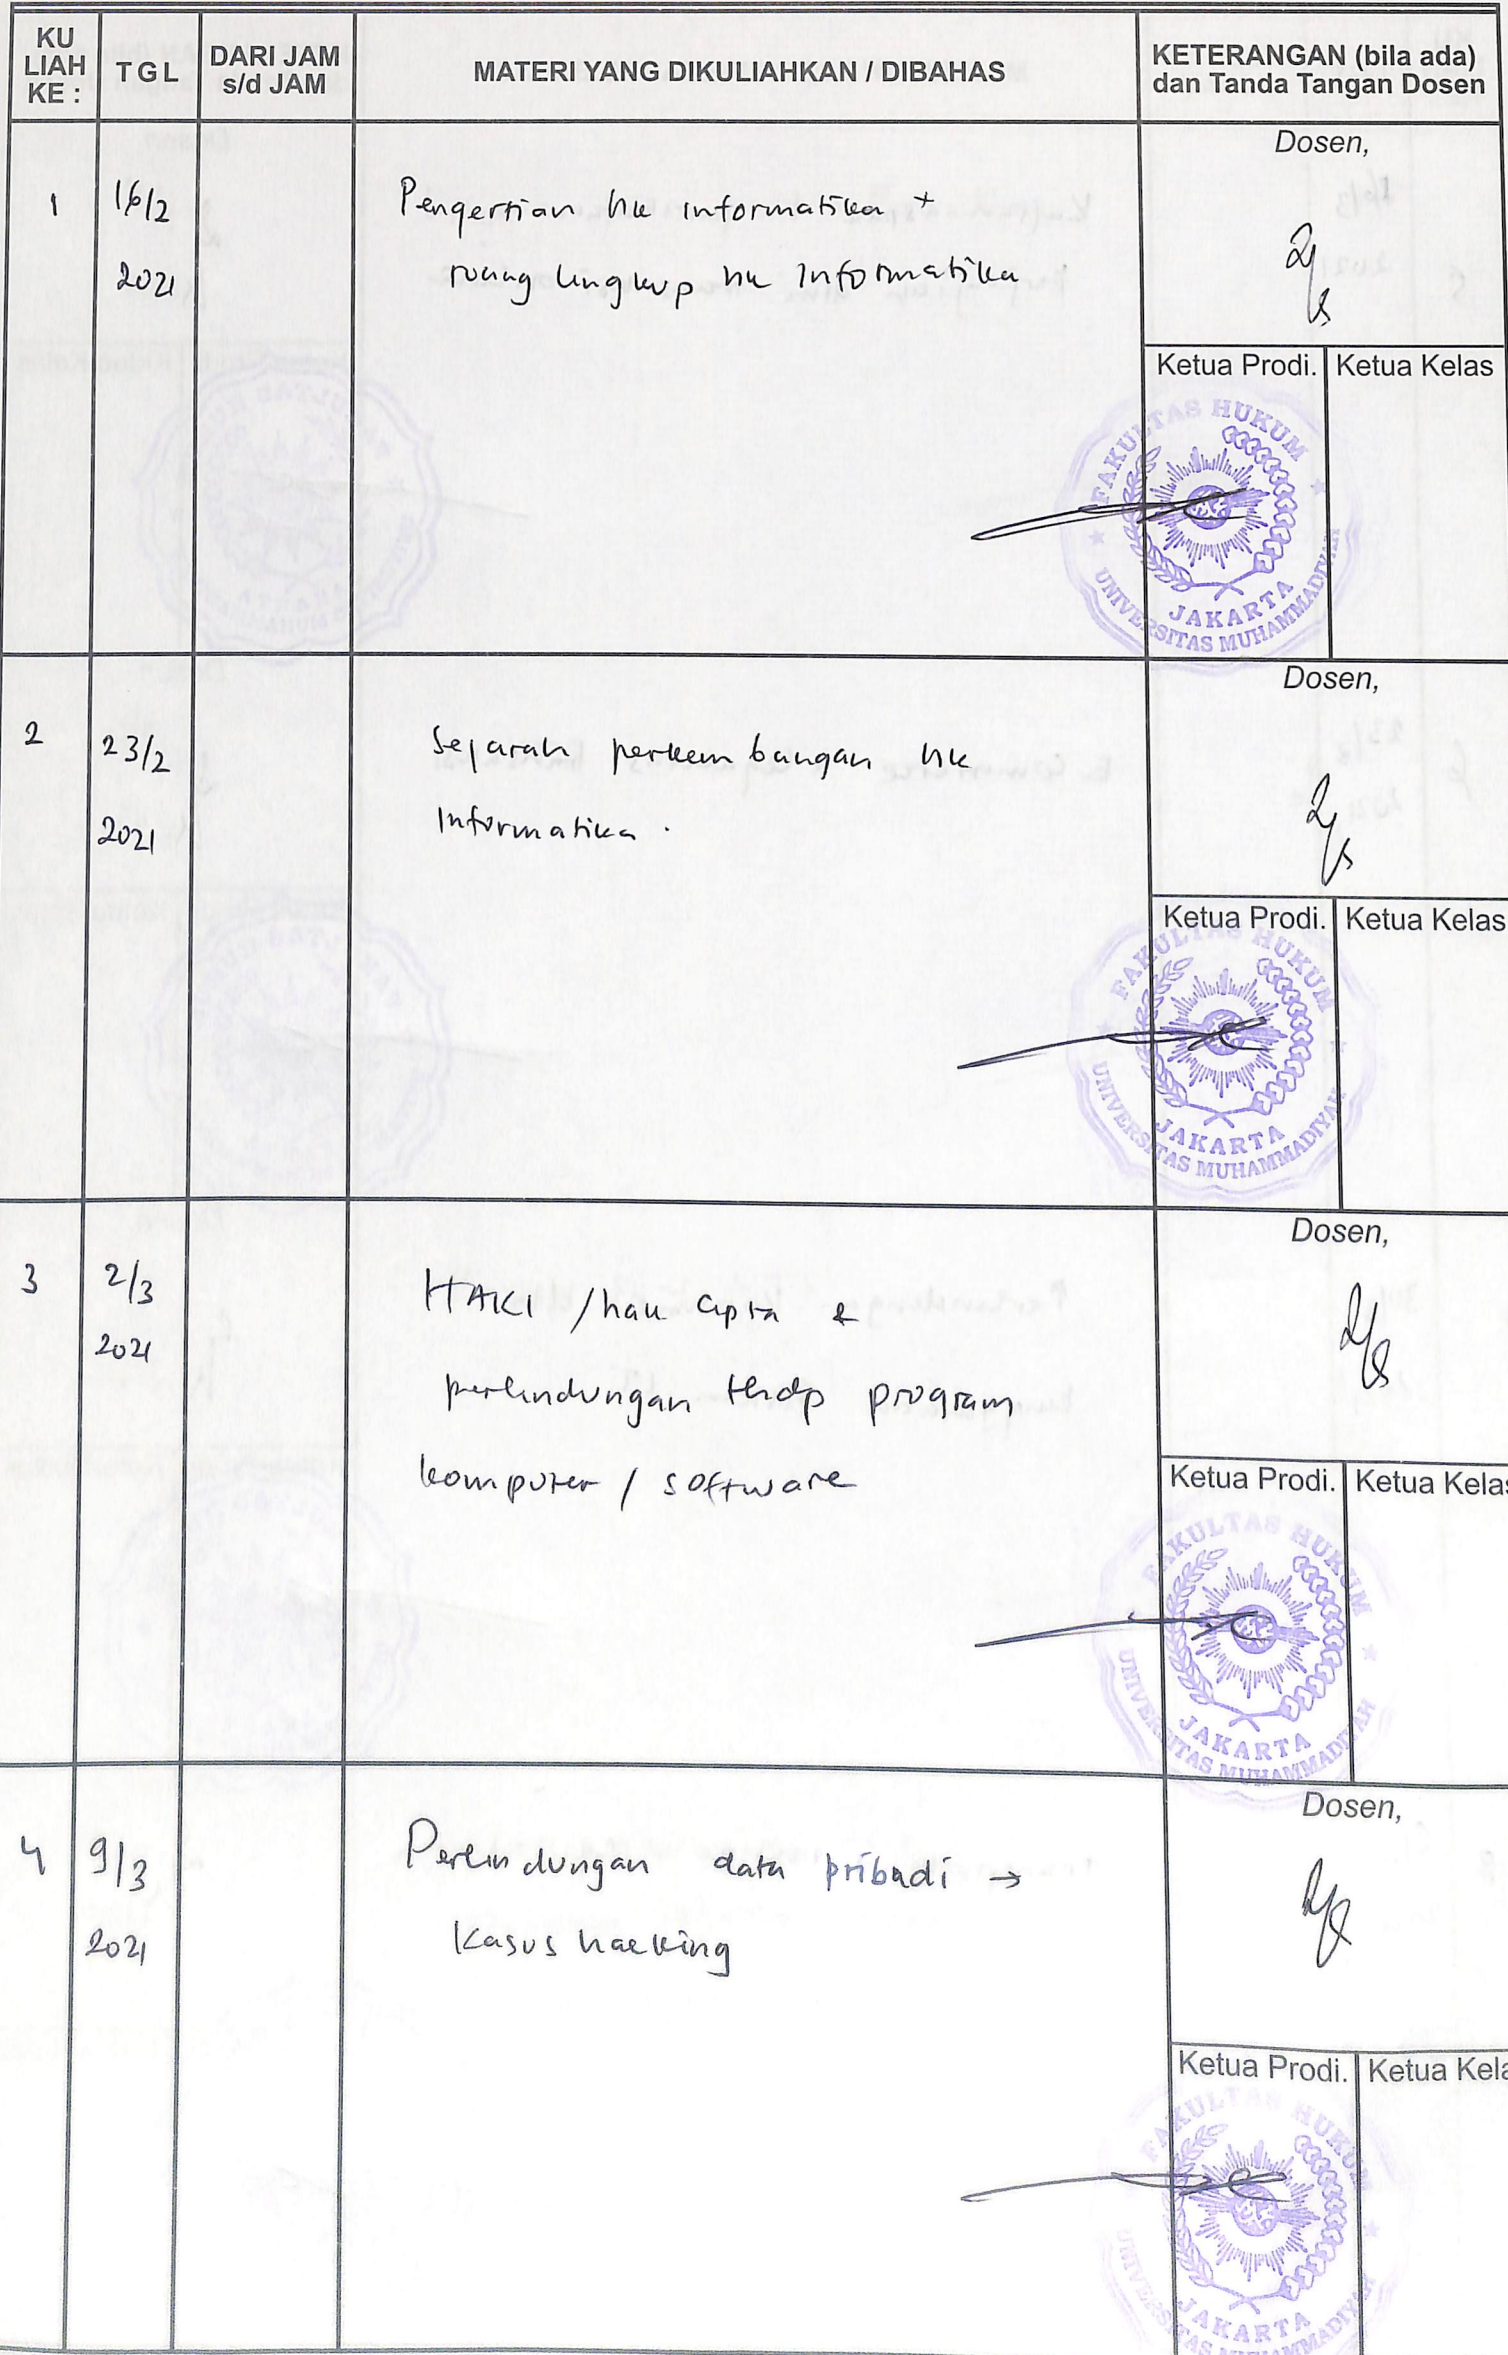 KU
LIAH
KE :
TGL
DARI JAM
s/d JAM
MATERI YANG DIKULIAHKAN / DIBAHAS
KETERANGAN (bila ada)
dan Tanda Tangan Dosen
1
16/2
2021
Pengertian hk informatika +
ruang lingkup hk Informatika
Dosen,
Ketua Prodi.
Ketua Kelas
FAKULTAS HUKUM
JAKARTA
UNIVERSITAS MUHAMMADIYAH
2
23/2
2021
Sejarah perkembangan hk
Informatika .
Dosen,
Ketua Prodi.
Ketua Kelas
FAKULTAS HUKUM
JAKARTA
UNIVERSITAS MUHAMMADIYAH
3
2/3
2021
HAKI / hak cipta &
perlindungan thdp program
komputer / software
Dosen,
Ketua Prodi.
Ketua Kelas
FAKULTAS HUKUM
JAKARTA
UNIVERSITAS MUHAMMADIYAH
4
9/3
2021
Perlindungan data pribadi →
Kasus hacking
Dosen,
Ketua Prodi.
Ketua Kela
FAKULTAS HUKUM
JAKARTA
UNIVERSITAS MUHAMMADIYAH